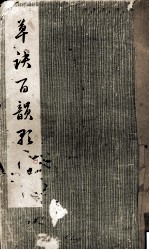 草诀百韵歌